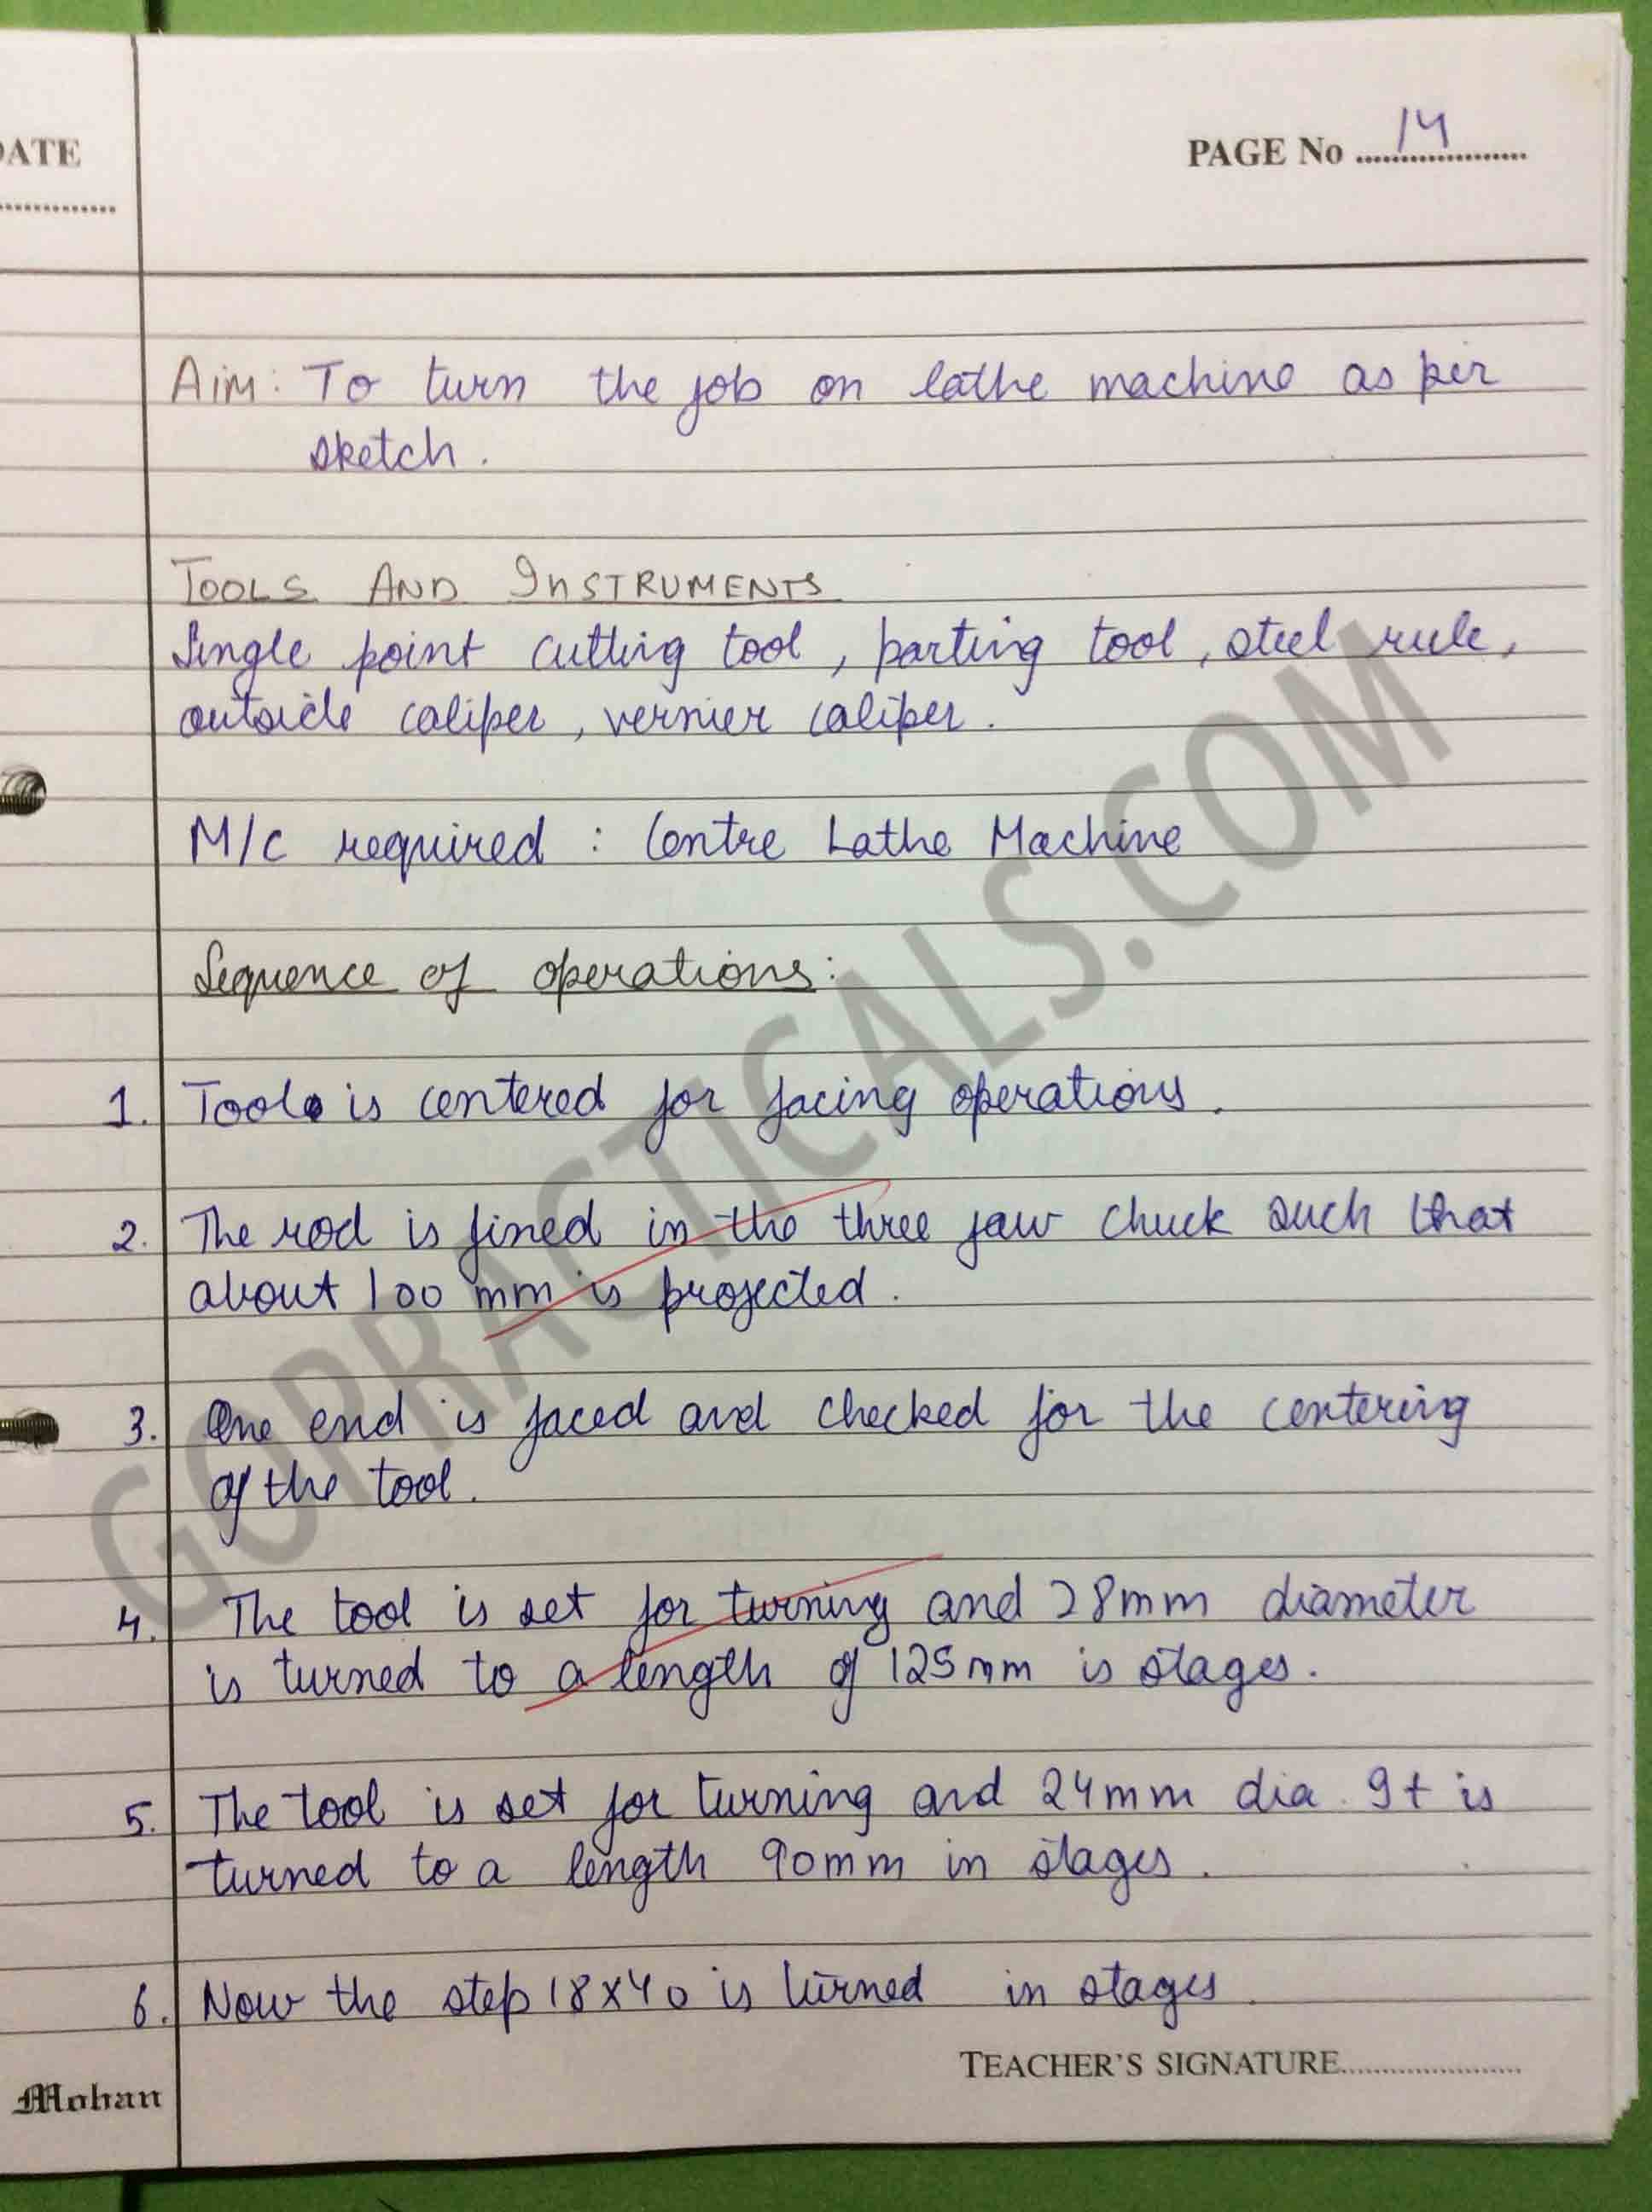 DATE
PAGE No 14
Aim: To turn the job on lathe machine as per
sketch.
TOOLS AND INSTRUMENTS
Single point cutting tool, parting tool, steel rule,
outside caliper, vernier caliper.
M/c required : Centre Lathe Machine
Sequence of operations:
1. Tool is centered for facing operations.
2. The rod is fined in the three jaw chuck such that
about 100 mm is projected.
3. One end is faced and checked for the centering
of the tool.
4. The tool is set for turning and 28mm diameter
is turned to a length of 125mm is stages.
5. The tool is set for turning and 24mm dia. It is
turned to a length 90mm in stages.
6. Now the step 18x40 is turned in stages.
TEACHER'S SIGNATURE
Mohan
GOPRACTICALS.COM